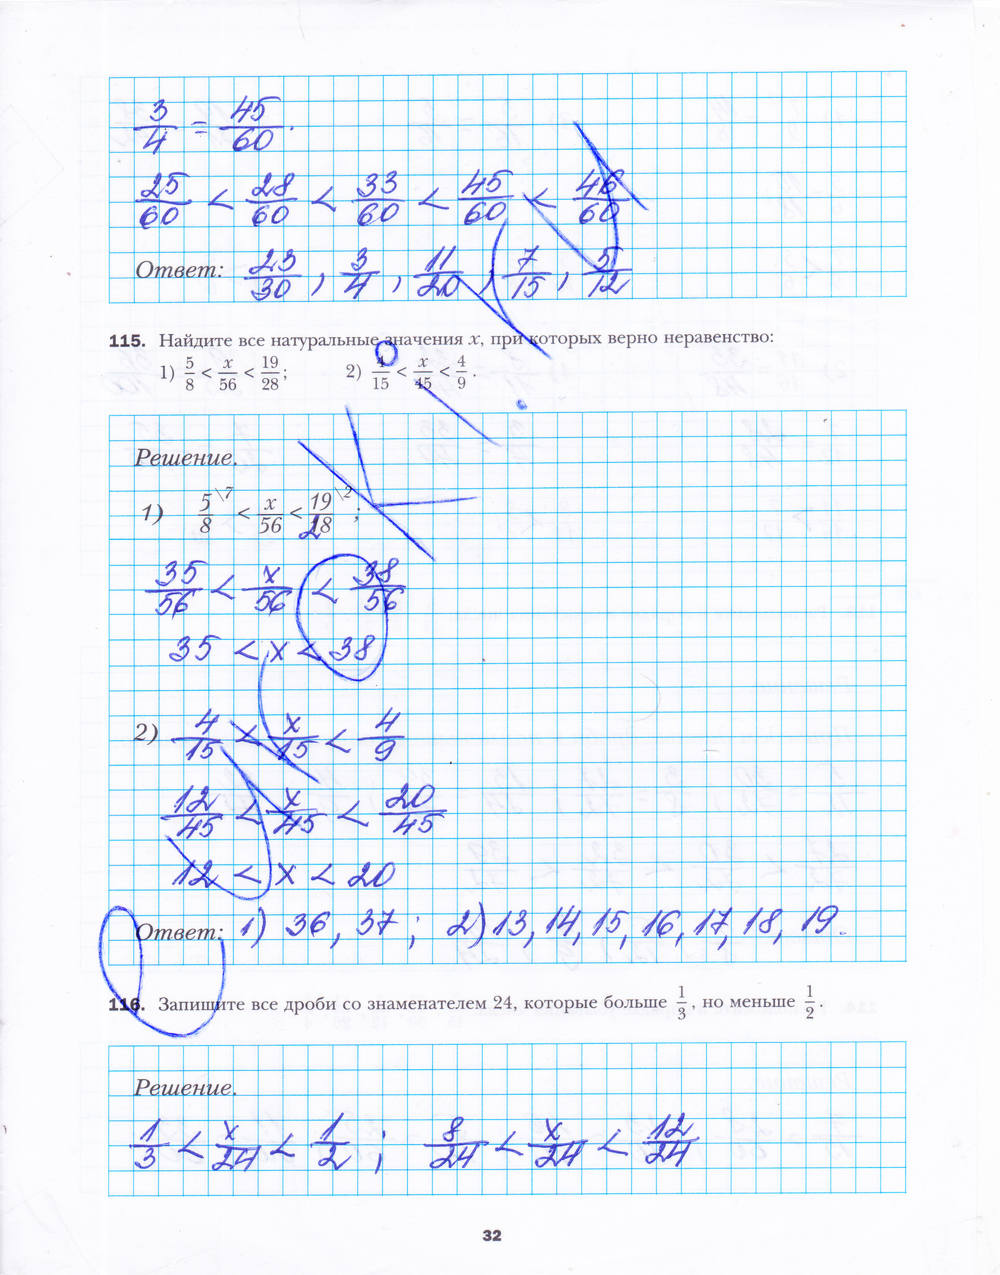 3/4 = 45/60.
25/60 < 28/60 < 33/60 < 45/60 < 46/60
Ответ: 23/30, 3/4, 11/20, 7/15, 5/12
115. Найдите все натуральные значения x, при которых верно неравенство:
1) 5/8 < x/56 < 19/28; 2) 4/15 < x/45 < 4/9.
Решение.
1) 5/8 \7 < x/56 < 19/28 \2;
35/56 < x/56 < 38/56
35 < x < 38
2) 4/15 < x/15 < 4/9
12/45 < x/45 < 20/45
12 < x < 20
Ответ: 1) 36, 37; 2) 13, 14, 15, 16, 17, 18, 19.
116. Запишите все дроби со знаменателем 24, которые больше 1/3, но меньше 1/2.
Решение.
1/3 < x/24 < 1/2; 8/24 < x/24 < 12/24
32